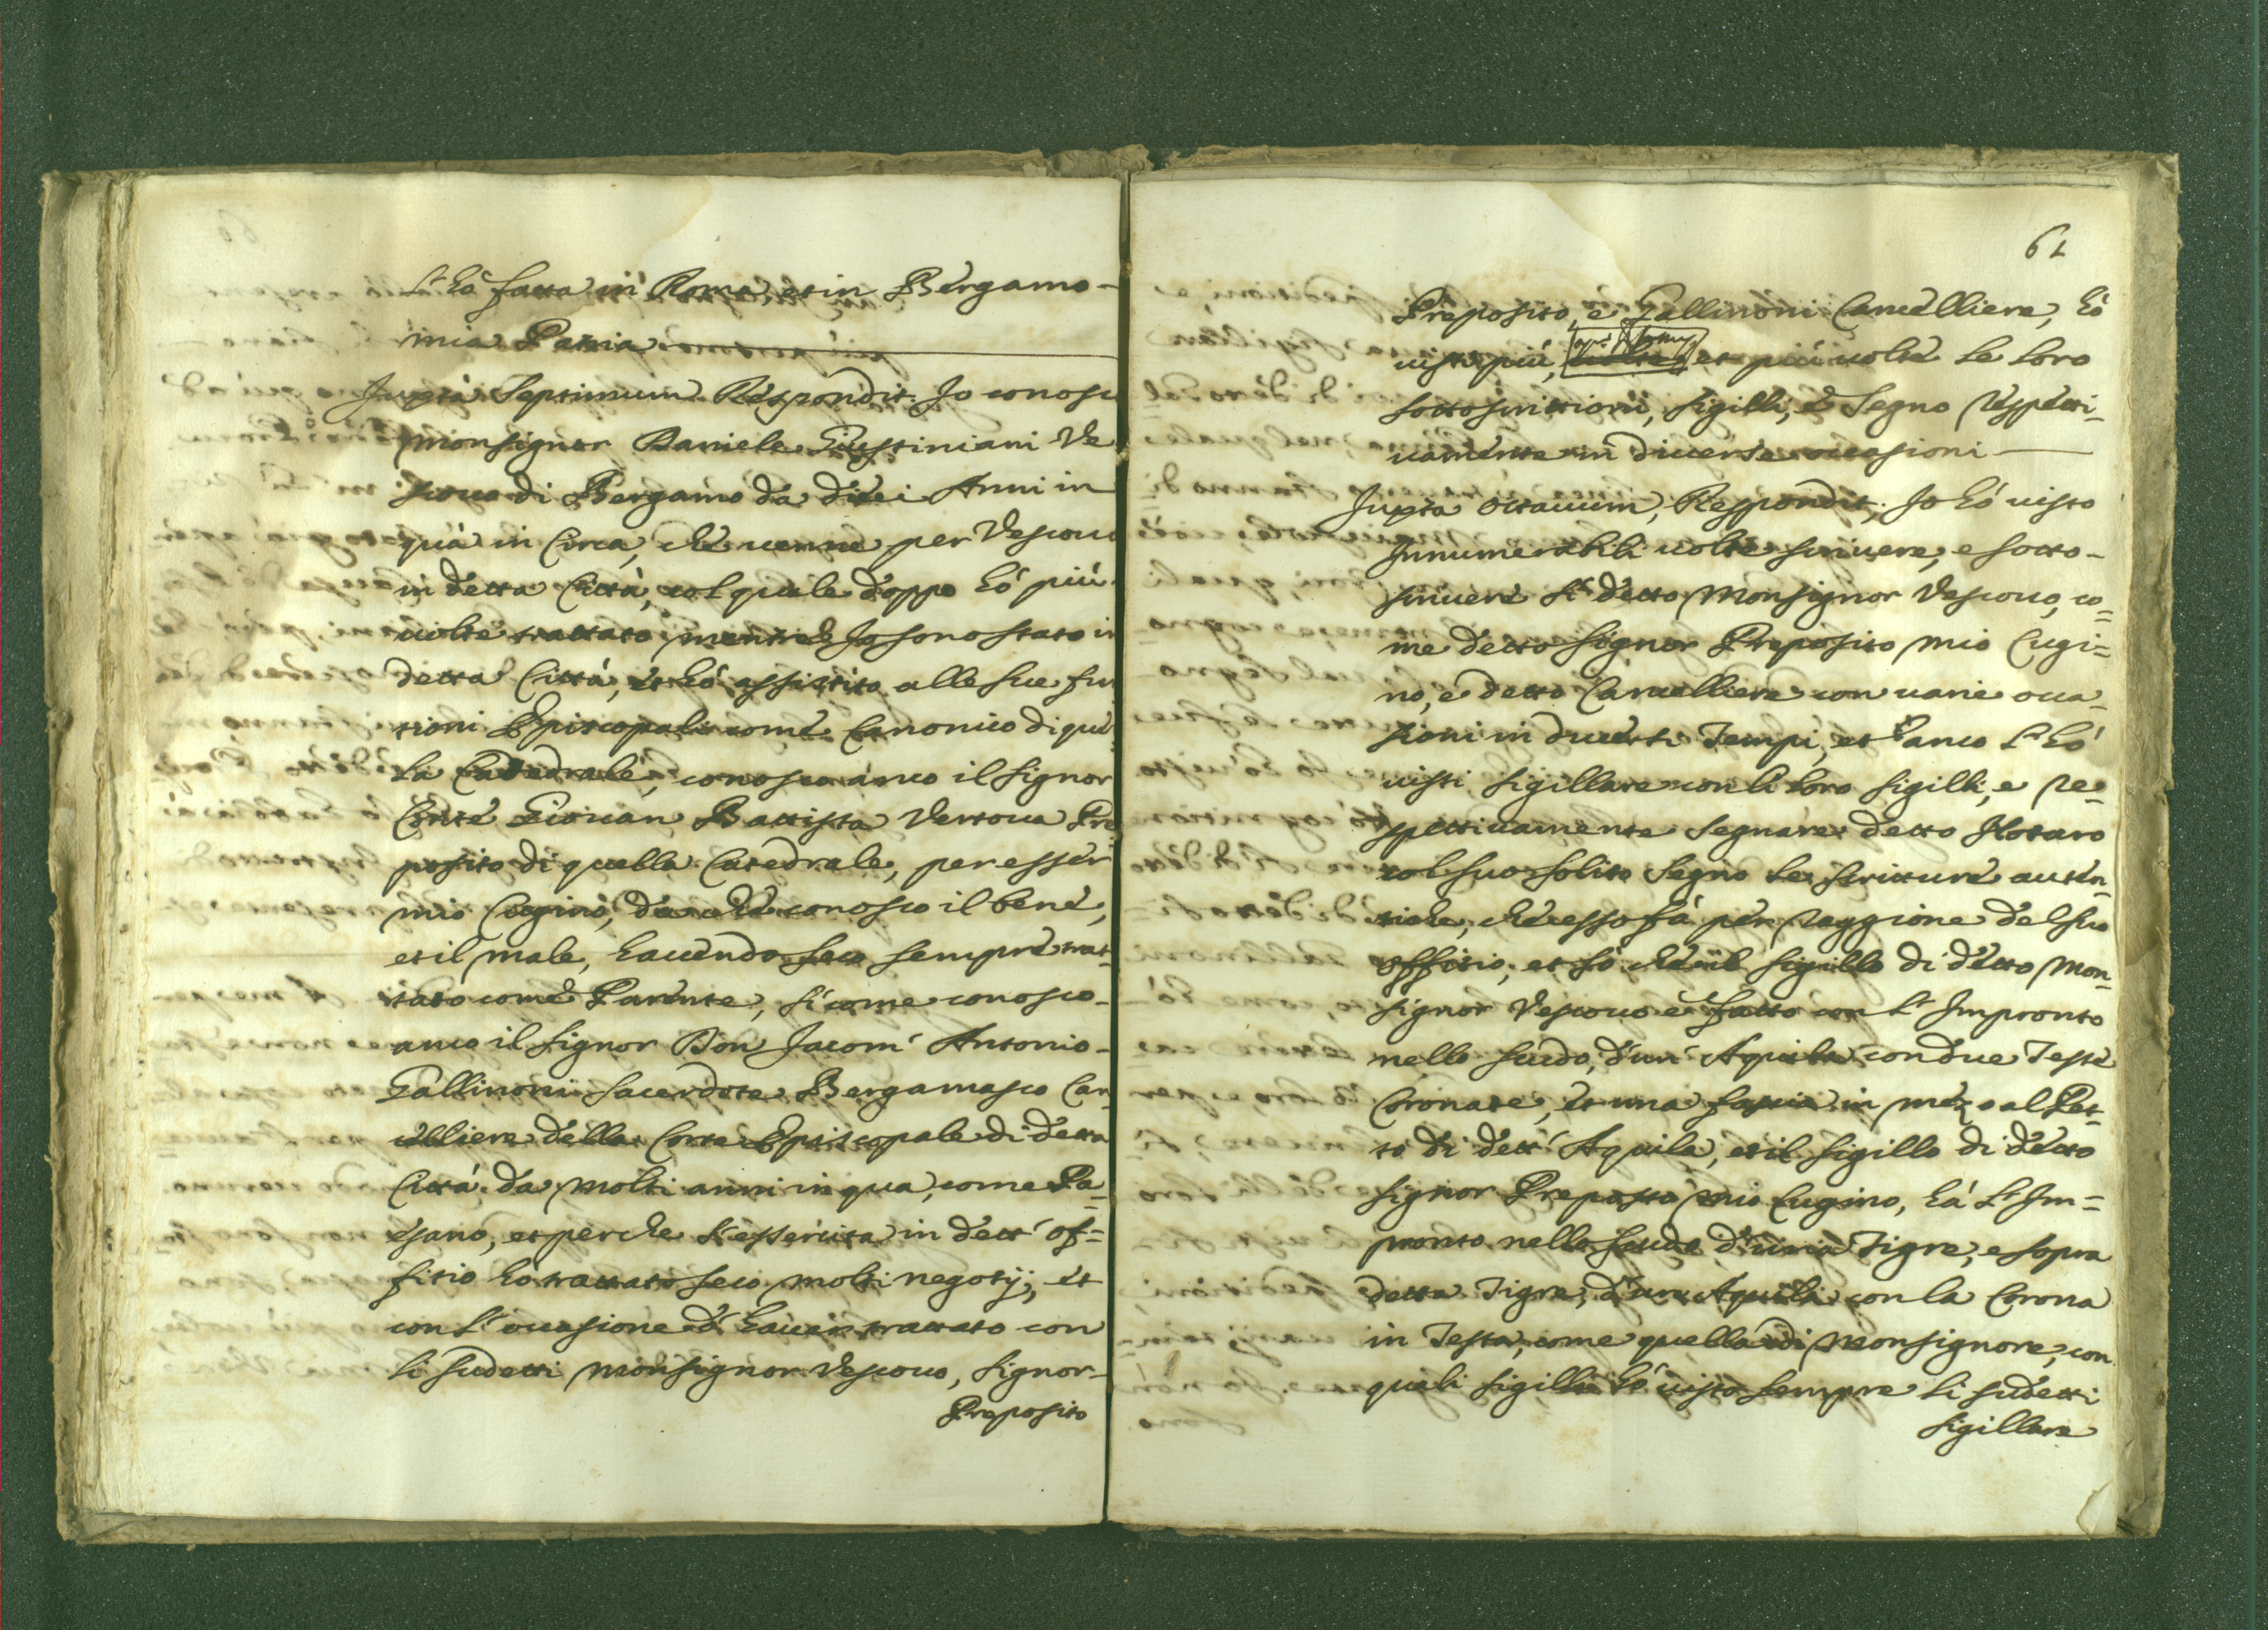 l'hò fatta in Roma, et in Bergamo-
mia Patria
Juxta Septimum Respondit. Jo conosc
Monsignor Daniele Giustiniani Ve
scouo di Bergamo da dieci Anni in
quà in Circa, che uenne per Vescouo
in detta Città, col quale doppo hò più
uolte trattato, mentre Jo sono stato in
detta Città, et hò assistito alle sue fun
tioni Episcopali come Canonico di quel
la Catedrale, conosco anco il Signor
Conte Giouan Battista Vertoua Pre
posito di quella Catedrale, per esser
mio Cugino, da che conosco il bene,
et il male, hauendo seco sempre trat-
tato come Parente, sì come conosco-
anco il Signor Don Jacom' Antonio-
Gallinoni Sacerdote Bergamasco Can
celliere della Corte Episcopale di detta
Città da molti anni in qua, come Pa-
esano, et perche l'essercita in dett' of=
fitio hò trattato seco molti negotij, et
con l'occasione d'hauer trattato con
li sudetti Monsignor Vescouo, Signor-
Preposito
61
Preposito, e Gallinoni Cancelliere, hò
uisto più, et più uolte le loro
sottoscrittioni, sigilli, e Segno respetti-
uamente in diuerse occasioni
Juxta octauum, Respondit, Jo hò uisto
Innumerabili uolte scriuere, e sotto-
scriuere sì detto Monsignor Vescouo, co=
me detto Signor Preposito mio Cugi=
no, e detto Cancelliere con uarie occa-
sioni in diuersi Tempi, et anco l'hò
uisti sigillare con li loro sigilli, e re=
spettiuamente segnare detto Notaro
col suo solito Segno le scritture auten-
tiche, che esso fà per raggione del suo
offitio, et sò che il sigillo di detto Mon=
signor Vescouo è fatto con l'Impronto
nello scudo, d'un' Aquila con due Teste
Coronate, et una fascia in mezo al Pet-
to di dett' Aquila, et il sigillo di detto
Signor Preposto mio Cugino, hà l'Im=
pronto nello scudo d'una Tigre, e sopra
detta Tigre, d'un Aquila con la Corona
in Testa, come quella di Monsignore, con
quali sigilli hò uisto sempre li sudetti
sigillare